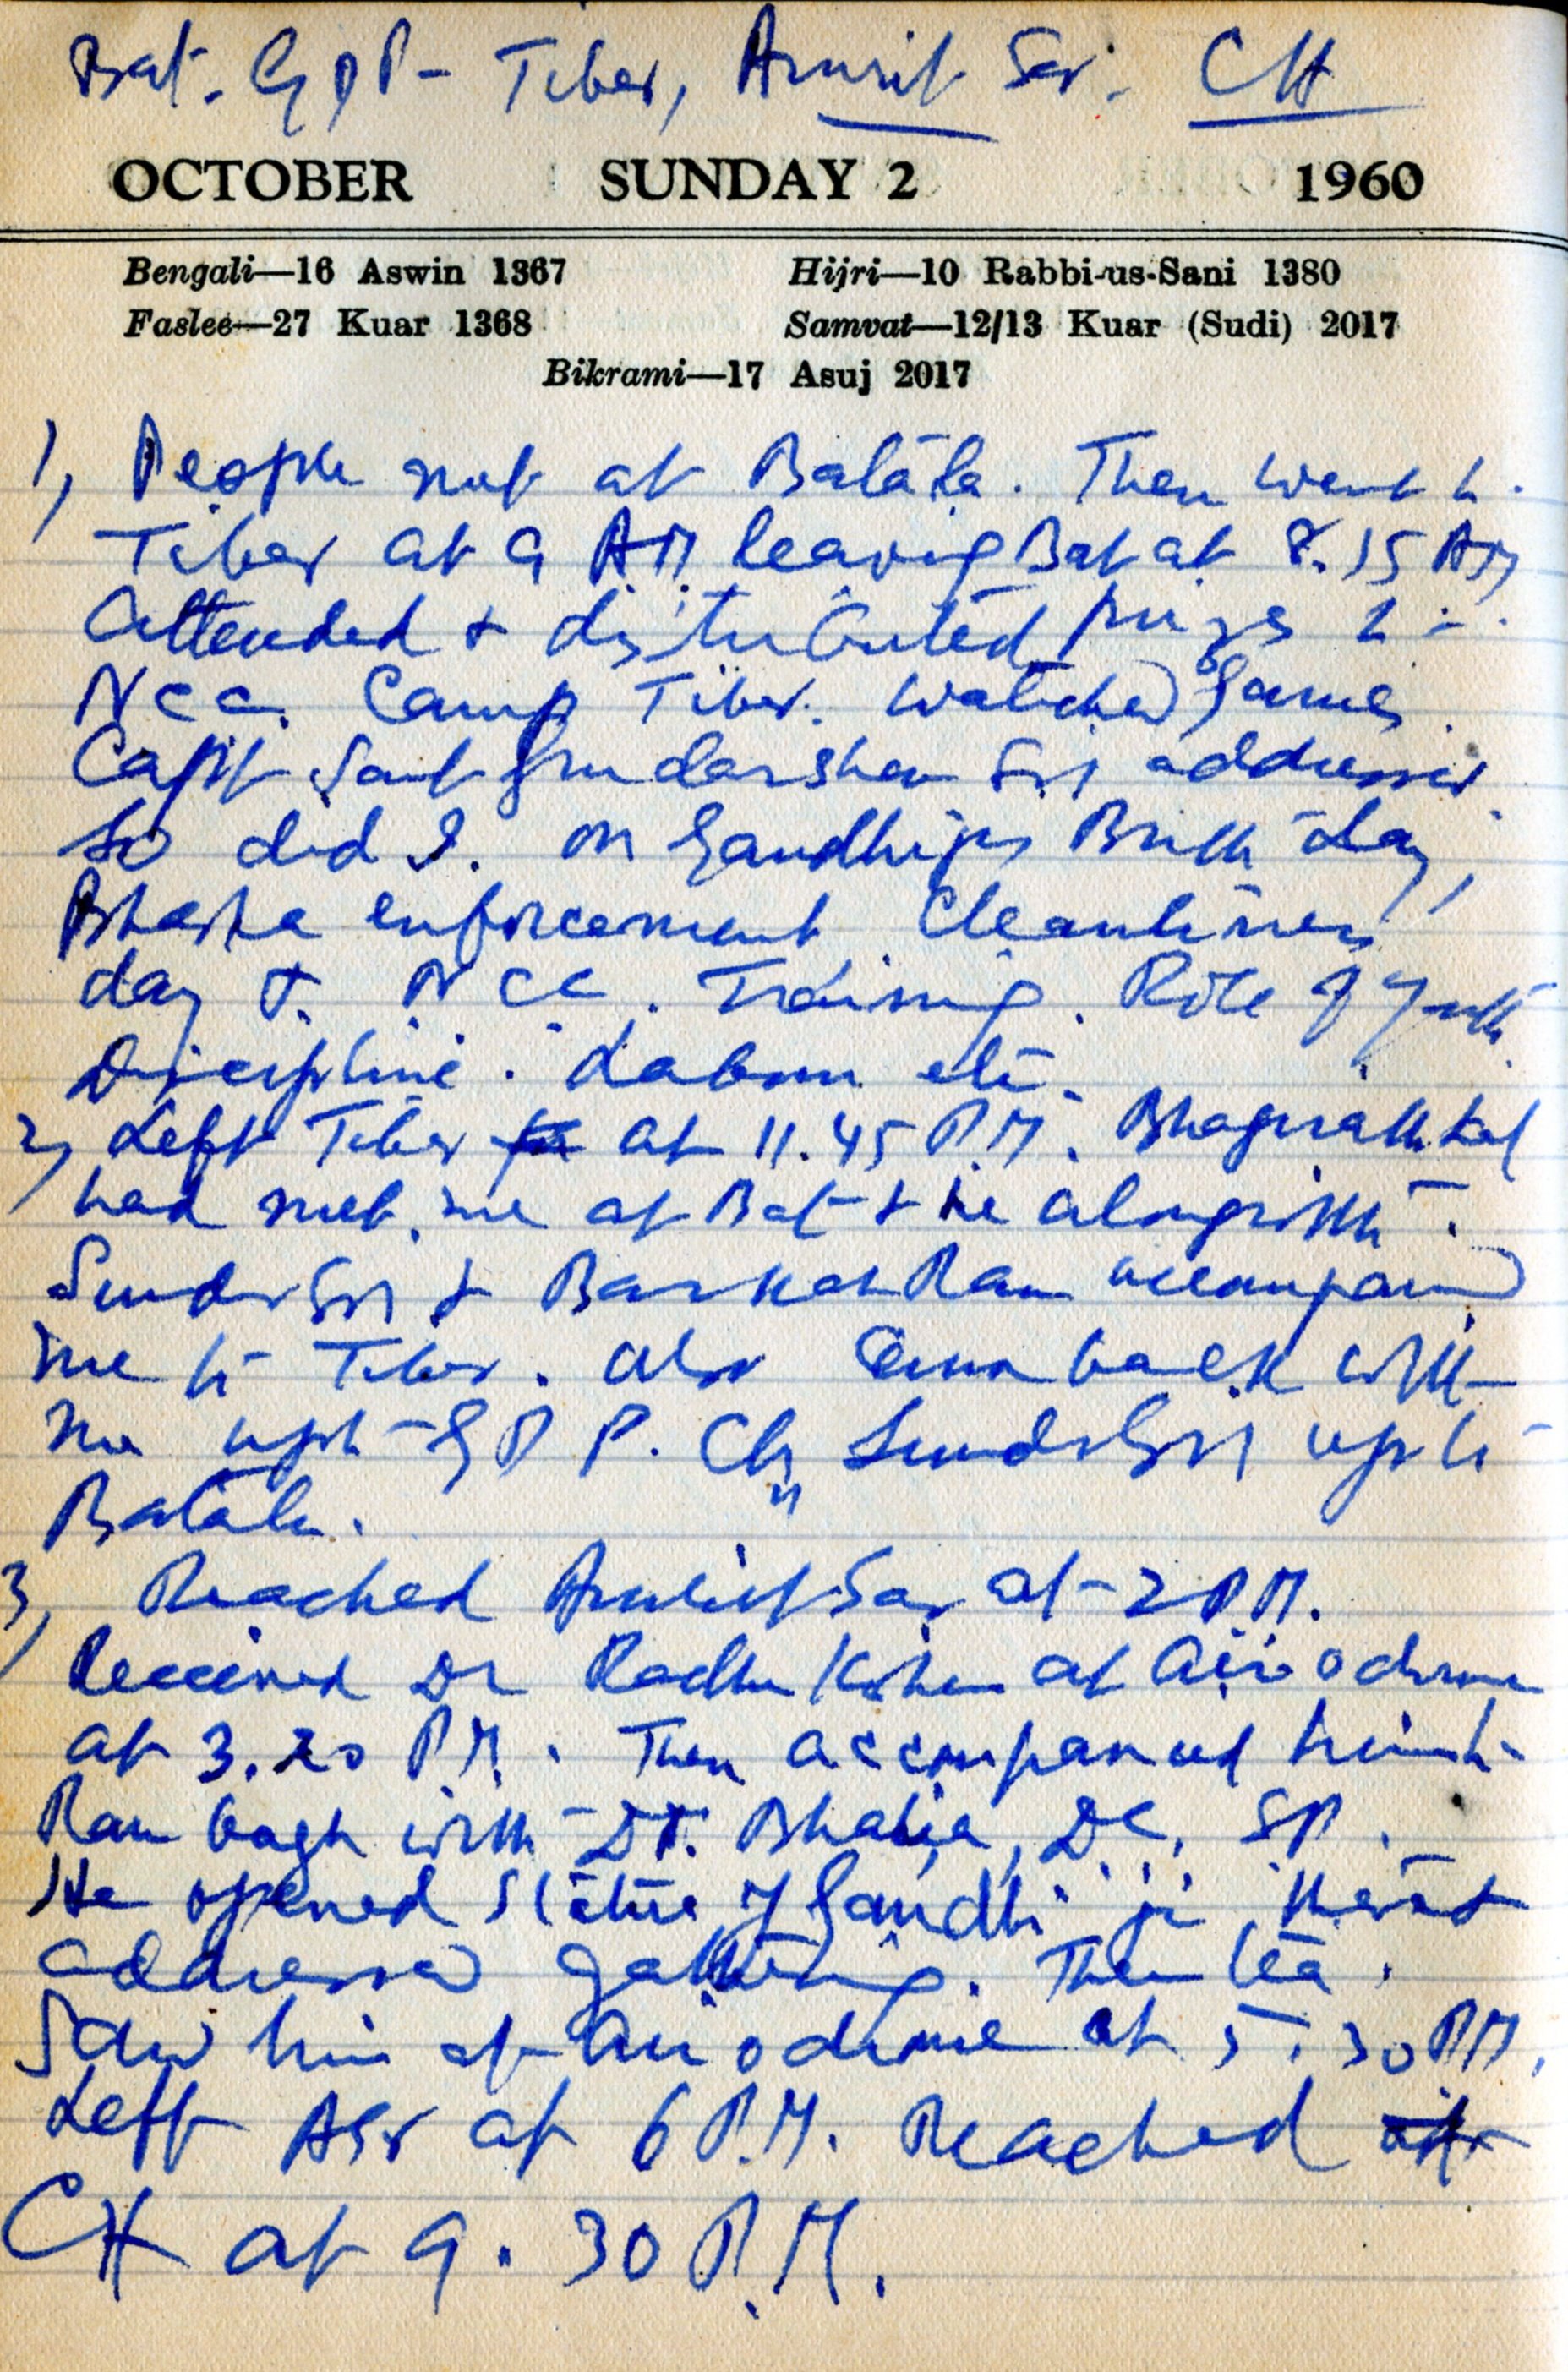 Bat. GDP- Tiber, Amrit Sar. CH
OCTOBER SUNDAY 2 1960
Bengali—16 Aswin 1367 Hijri—10 Rabbi-us-Sani 1380
Faslee—27 Kuar 1368 Samvat—12/13 Kuar (Sudi) 2017
Bikrami—17 Asuj 2017
1, People met at Batala. Then went to
Tiber at 9 AM leaving Bat at 8.15 AM
attended & distributed prizes
NCC. Camp Tiber. Watched games
Capt Sant addressed
So did I. on Gandhijis Birth day,
Bhasha enforcement Cleanliness
day & NCC. Training. Role of Youth
Discipline. Labour etc.
2, Left Tiber at 11.45 P.M.
had met me at Bat & he alongwith
& Barkat Ram accompanied
me to Tiber. Also came back with
me upto G P P. Ch upto
Batala.
3, Reached Amritsar at 2 PM.
Received Dr Radha Kishen at Airodrome
at 3.20 P.M. Then accompanied him to
Ram bagh with Bhatia, DC, SP.
He opened Statue of Gandhi ji there &
addressed gathering. Then tea.
Saw him at Airodrome at 5.30 PM.
Left ASR at 6 P.M. Reached
CH at 9.30 P.M.